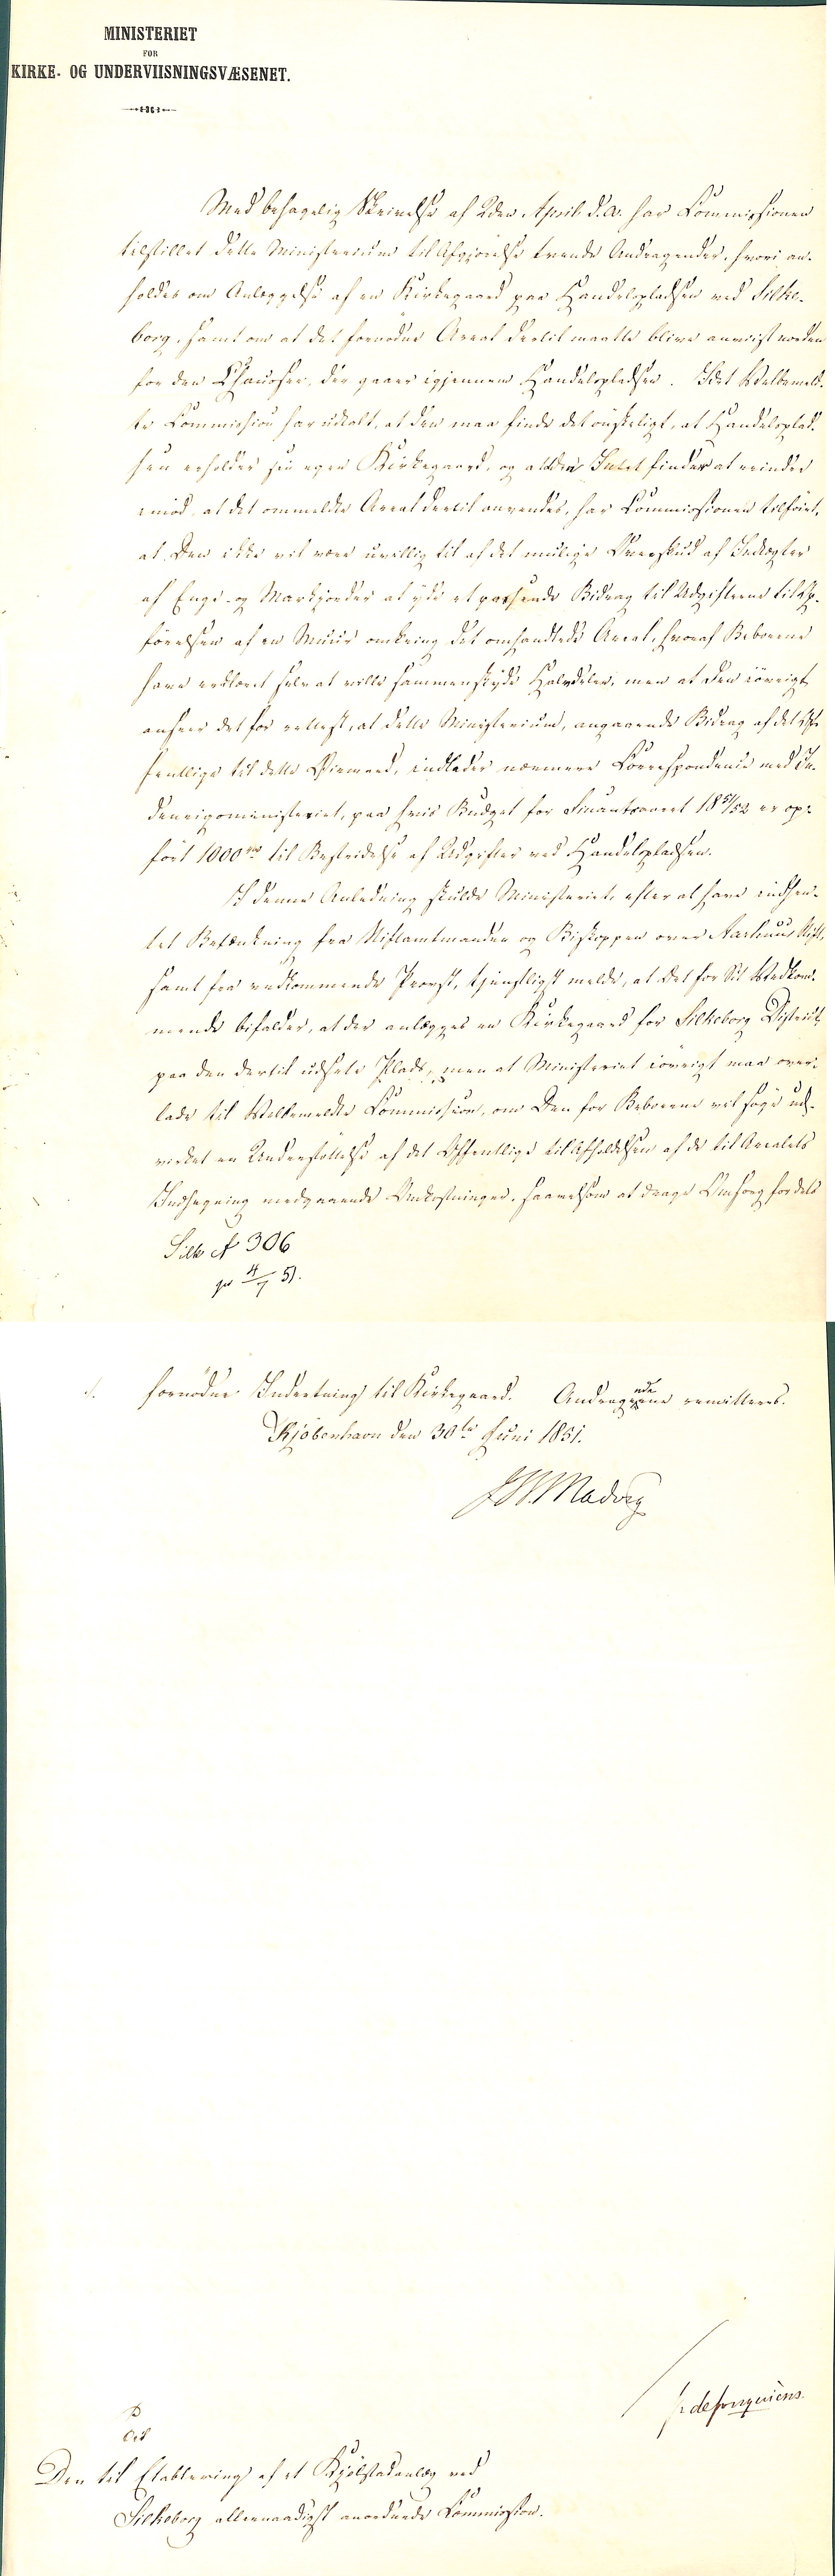 MINISTERIET
FOR
KIRKE- OG UNDERVIISNINGSVÆSENET.
Med behagelig Skrivelse af 2den April d.A. har Commissionen
tilstillet dette Ministerium til Afgjørelse trende Andragender, hvori an-
holdes om Anlæggelse af en Kirkegaard paa Handelspladsen ved Silke-
borg, samt om at det fornødne Areal dertil maatte blive anviist norden
for den Chaussee, der gaaer igjennem Handelspladsen. Idet Velbemeld-
te Commission har udtalt, at den maa finde det ønskeligt, at Handelsplad-
sen erholder sin egen Kirkegaard, og at den Intet finder at erindre
imod, at det ommeldte Areal dertil anvendes, har Commissionen tilføiet,
at Den ikke vil være uvillig til af det mulige Overskud af Indtægter
af Engs- og Markjorder at yde et passende Bidrag til Udgifterne til Op-
førelsen af en Muur omkring det omhandlede Areal, hvoraf Beboerne
have erklæret selv at ville sammenskyde Halvdelen, men at den iøvrigt
anseer det for rettest, at dette Ministerium, angaaende Bidrag af det Of-
fentlige til dette Øiemeed, indleder nærmere Correspondence med In-
denrigsministeriet, paa hvis Budget for Finantsaaret 1851/52 er op-
ført 1000 rd til Bestridelse af Udgifter ved Handelspladsen.
I denne Anledning skulde Ministeriet, efter at have indhen-
tet Betænkning fra Stiftamtmanden og Biskoppen over Aarhuus Stift,
samt fra vedkommende Provst, tjenstligst melde, at det for Sit Vedkom-
mende bifalder, at der anlægges en Kirkegaard for Silkeborg District
paa den dertil udseete Plads, men at Ministeriet iøvrigt maa over-
lade til Velbemeldte Commission, om Den for Beboerne vil søge ud-
virket en Understøttelse af det Offentlige til Afholdelsen af de til Arealets
Indhegning medgaaende Omkostninger, saavelsom at drage Omsorg for dets
Silk № 306
pr 4/7 51.
./. fornødne Indretning til Kirkegaard. Andragende remitteres.
Kjøbenhavn den 30te Juni 1851.
J.N. Madvig
Til
Den til Etablering af et Kjøbstadanlæg ved
Silkeborg allernaadigst anordnede Commission.